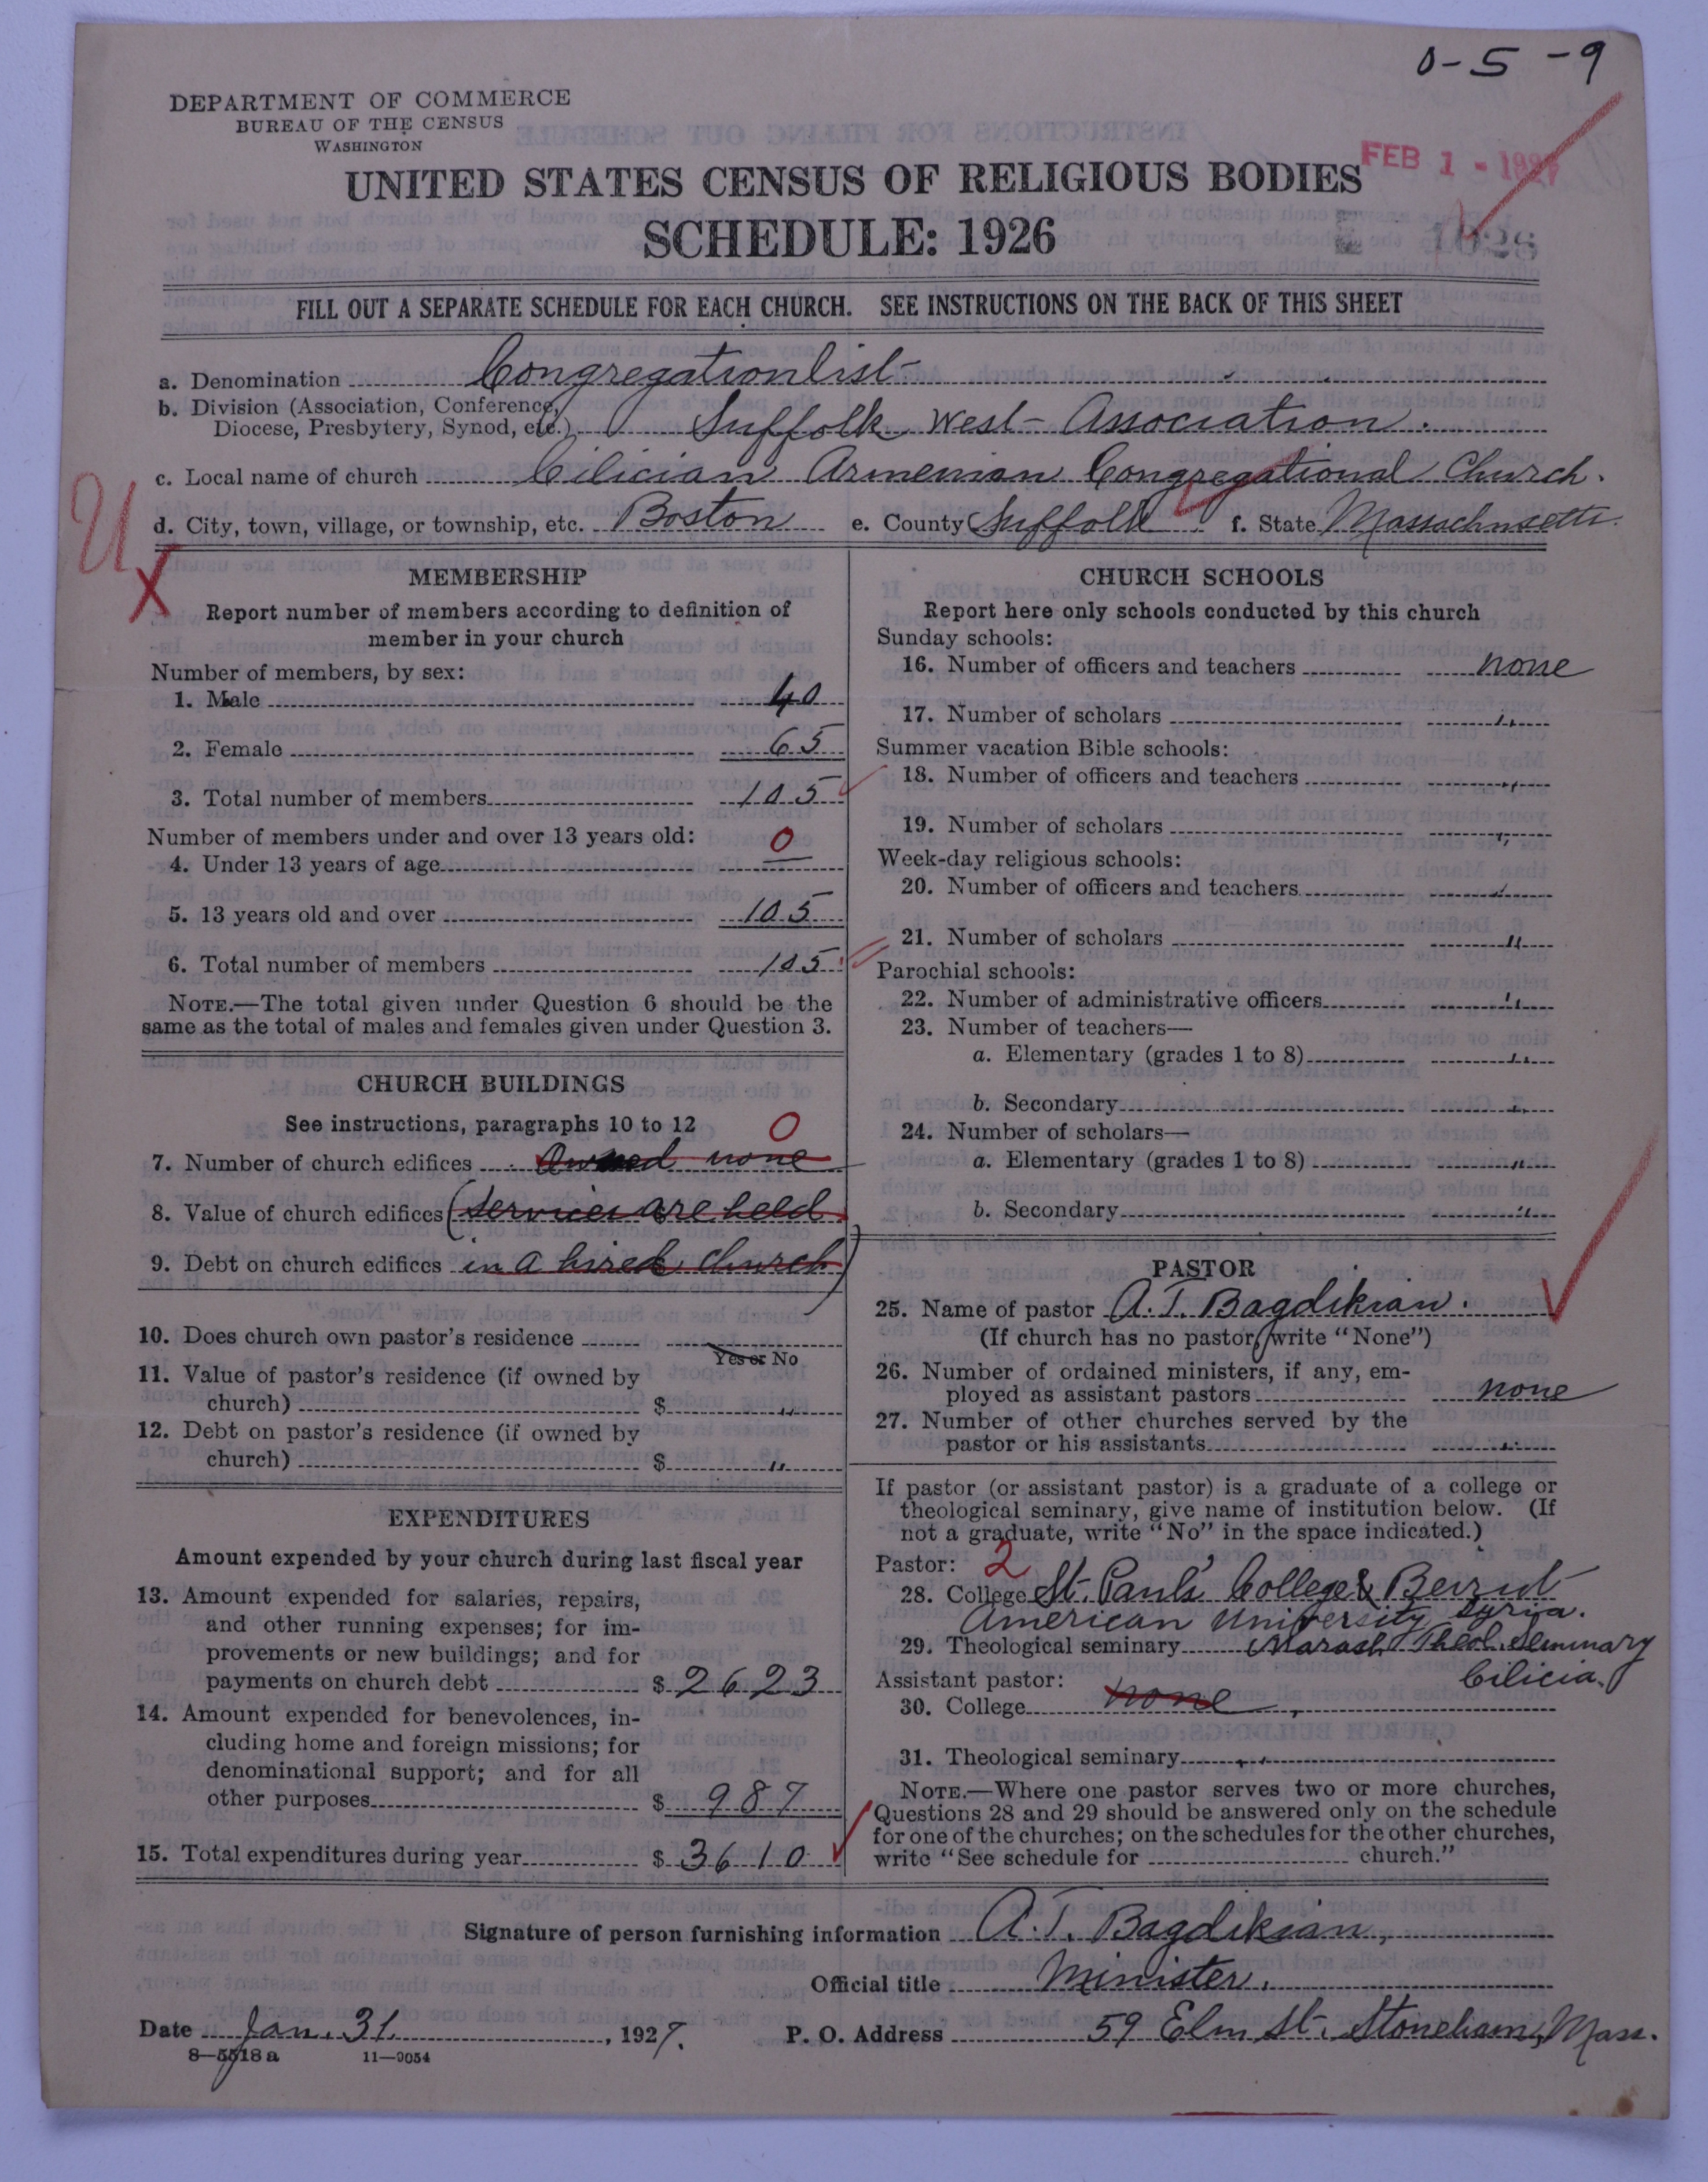 0-5-9
DEPARTMENT OF COMMERCE
BUREAU OF THE CENSUS
WASHINGTON
FEB 1 - 1927
UNITED STATES CENSUS OF RELIGIOUS BODIES
SCHEDULE: 1926
FILL OUT A SEPARATE SCHEDULE FOR EACH CHURCH. SEE INSTRUCTIONS ON THE BACK OF THIS SHEET
a. Denomination Congregationlist
b. Division (Association, Conference,
Diocese, Presbytery, Synod, etc.) Suffolk West Association.
c. Local name of church Cilician Armenian Congregational Church.
d. City, town, village, or township, etc. Boston e. County Suffolk f. State Massachusetts.
U
X
MEMBERSHIP
Report number of members according to definition of
member in your church
Number of members, by sex:
1. Male 40
2. Female 65
3. Total number of members 105
Number of members under and over 13 years old:
4. Under 13 years of age 0
5. 13 years old and over 105
6. Total number of members 105
NOTE.—The total given under Question 6 should be the
same as the total of males and females given under Question 3.
CHURCH BUILDINGS
See instructions, paragraphs 10 to 12 0
7. Number of church edifices Owned none
8. Value of church edifices (services are held
9. Debt on church edifices in a hired church)
10. Does church own pastor's residence
Yes or No
11. Value of pastor's residence (if owned by
church) $ "
12. Debt on pastor's residence (if owned by
church) $ "
EXPENDITURES
Amount expended by your church during last fiscal year
13. Amount expended for salaries, repairs,
and other running expenses; for im-
provements or new buildings; and for
payments on church debt $ 2623
14. Amount expended for benevolences, in-
cluding home and foreign missions; for
denominational support; and for all
other purposes $ 987
15. Total expenditures during year $ 3610
CHURCH SCHOOLS
Report here only schools conducted by this church
Sunday schools:
16. Number of officers and teachers none
17. Number of scholars "
Summer vacation Bible schools:
18. Number of officers and teachers "
19. Number of scholars "
Week-day religious schools:
20. Number of officers and teachers "
21. Number of scholars "
Parochial schools:
22. Number of administrative officers "
23. Number of teachers—
a. Elementary (grades 1 to 8) "
b. Secondary "
24. Number of scholars—
a. Elementary (grades 1 to 8) "
b. Secondary "
PASTOR
25. Name of pastor A. T. Bagdikian.
(If church has no pastor, write "None")
26. Number of ordained ministers, if any, em-
ployed as assistant pastors none
27. Number of other churches served by the
pastor or his assistants "
If pastor (or assistant pastor) is a graduate of a college or
theological seminary, give name of institution below. (If
not a graduate, write "No" in the space indicated.)
Pastor: 2
28. College St. Paul's College & Beirut
American University Syria.
29. Theological seminary Marash Theol. Seminary
Cilicia.
Assistant pastor:
30. College none
31. Theological seminary "
NOTE.—Where one pastor serves two or more churches,
Questions 28 and 29 should be answered only on the schedule
for one of the churches; on the schedules for the other churches,
write "See schedule for church."
Signature of person furnishing information A. T. Bagdikian,
Official title Minister.
Date Jan. 31, 1927. P. O. Address 59 Elm St. Stoneham, Mass.
8—5518 a 11—9054